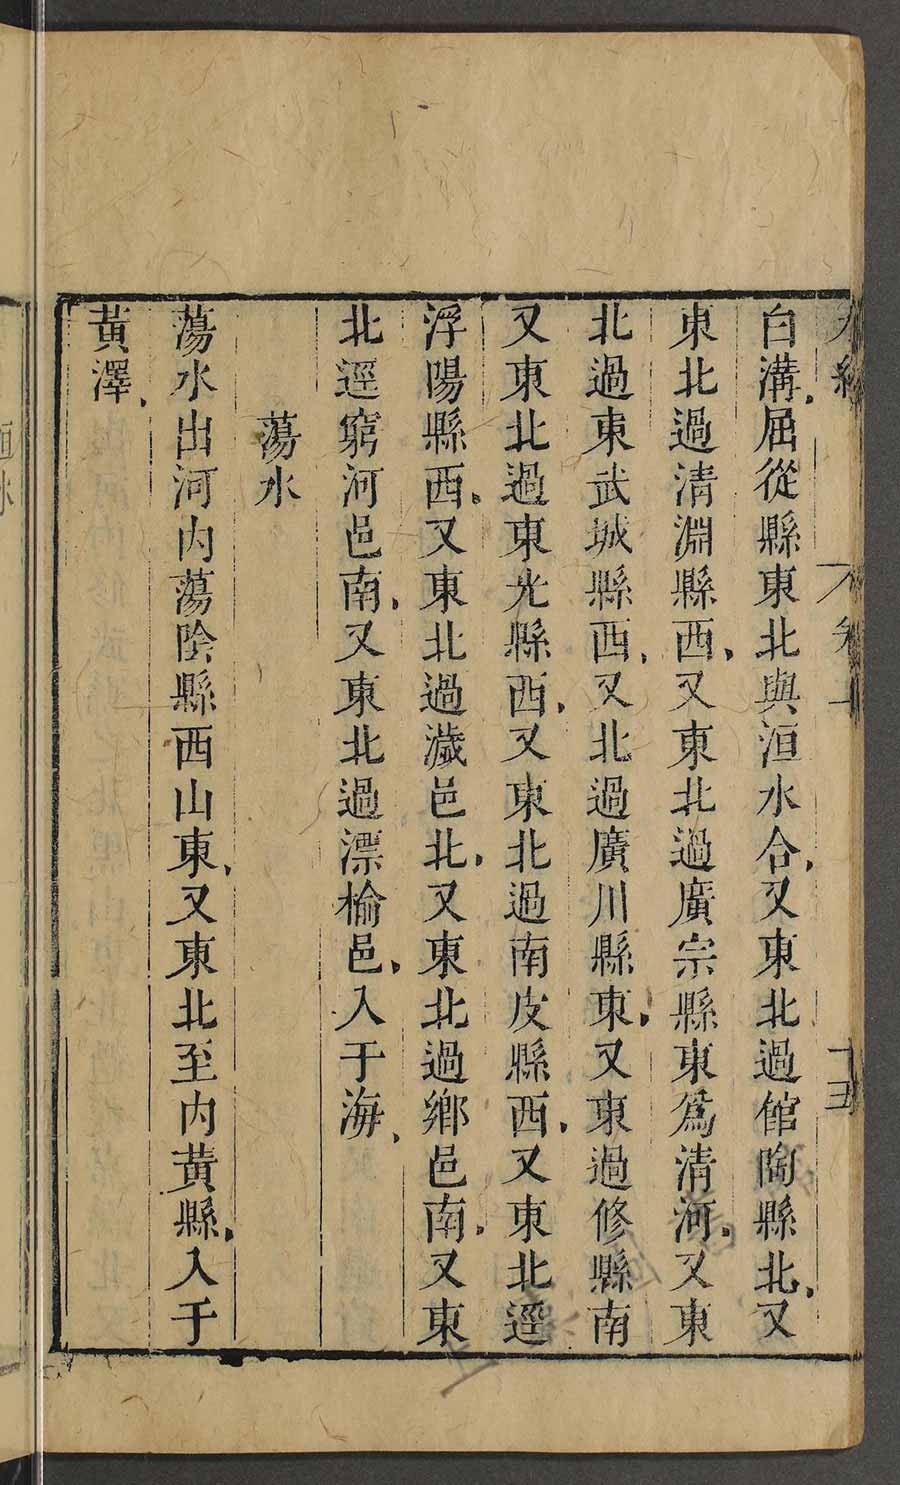 白溝、屈從縣東北與洹水合、又東北過館陶縣北、又
東北過清淵縣西、又東北過廣宗縣東爲清河、又東
北過東武城縣西、又北過廣川縣東、又東過修縣南
又東北過東光縣西、又東北過南皮縣西、又東北逕
浮陽縣西、又東北過濊邑北、又東北過鄉邑南、又東
北逕窮河邑南、又東北過漂榆邑、入于海、
蕩水
蕩水出河內蕩陰縣西山東、又東北至內黃縣、入于
黃澤、